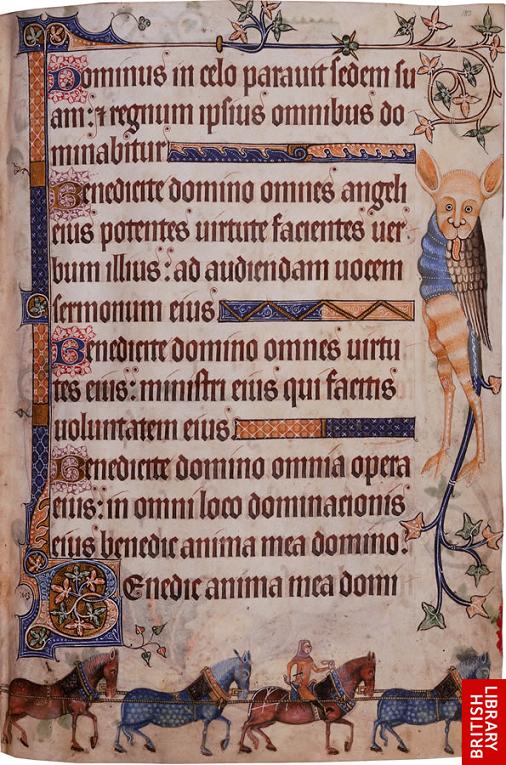 Dominus in celo parauit sedem su
am: ⁊ regnum ipsius omnibus do
minabitur
Benedicite domino omnes angeli
eius potentes uirtute facientes uer
bum illius: ad audiendam uocem
sermonum eius
Benedicite domino omnes uirtu
tes eius: ministri eius qui facitis
uoluntatem eius.
Benedicite domino omnia opera
eius: in omni loco dominacionis
eius benedic anima mea domino.
BEnedic anima mea domi
BRITISH
LIBRARY